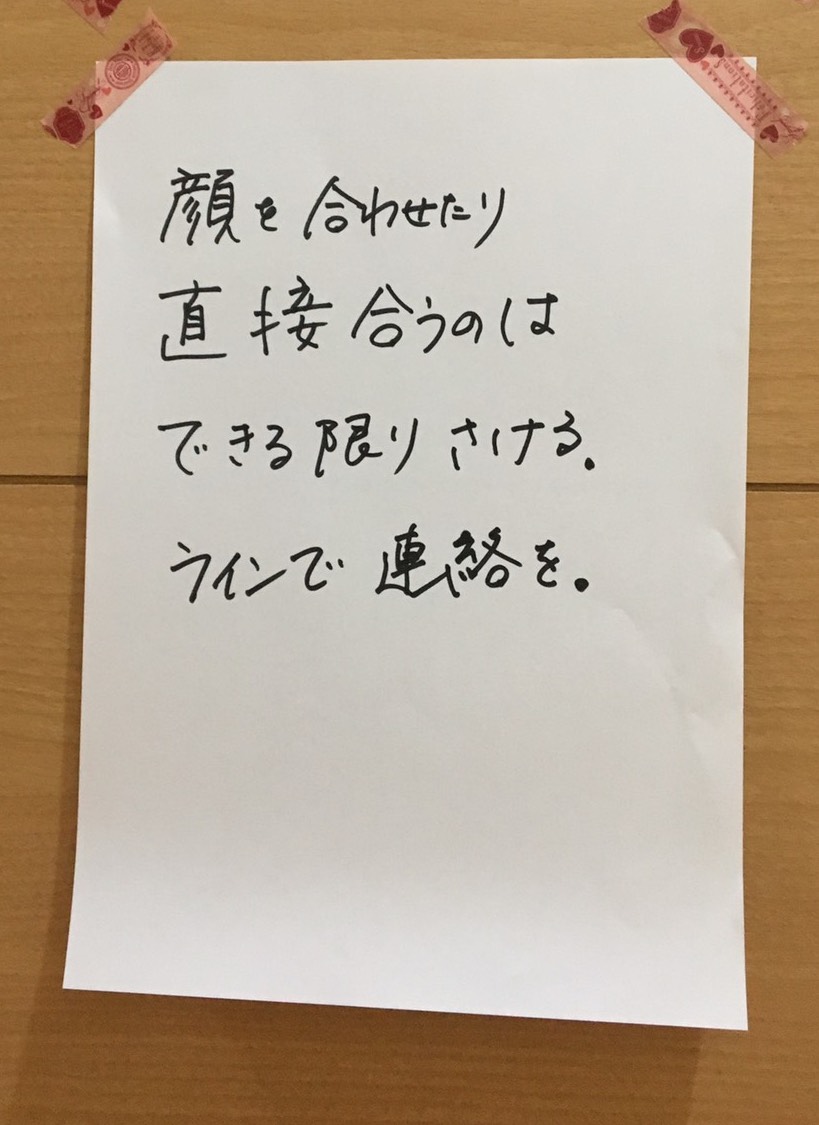 顔を合わせたり
直接合うのは
できる限りさける。
ラインで連絡を。